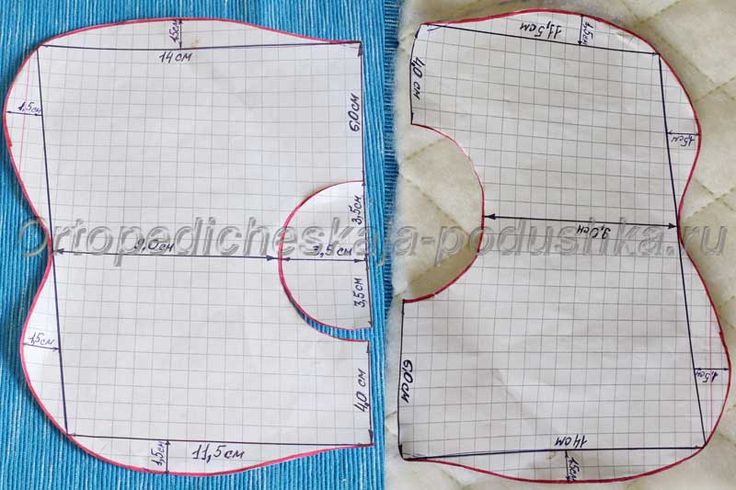 1,5см
14см
1,5см
6,0см
3,5см
9,0см
3,5см
3,5см
1,5см
4,0 см
11,5см
1,5см
11,5см
1,5см
4,0 см
1,5см
9,0см
6,0см
1,5см
14см
1,5см
Ortopedicheskaja-podushka.ru